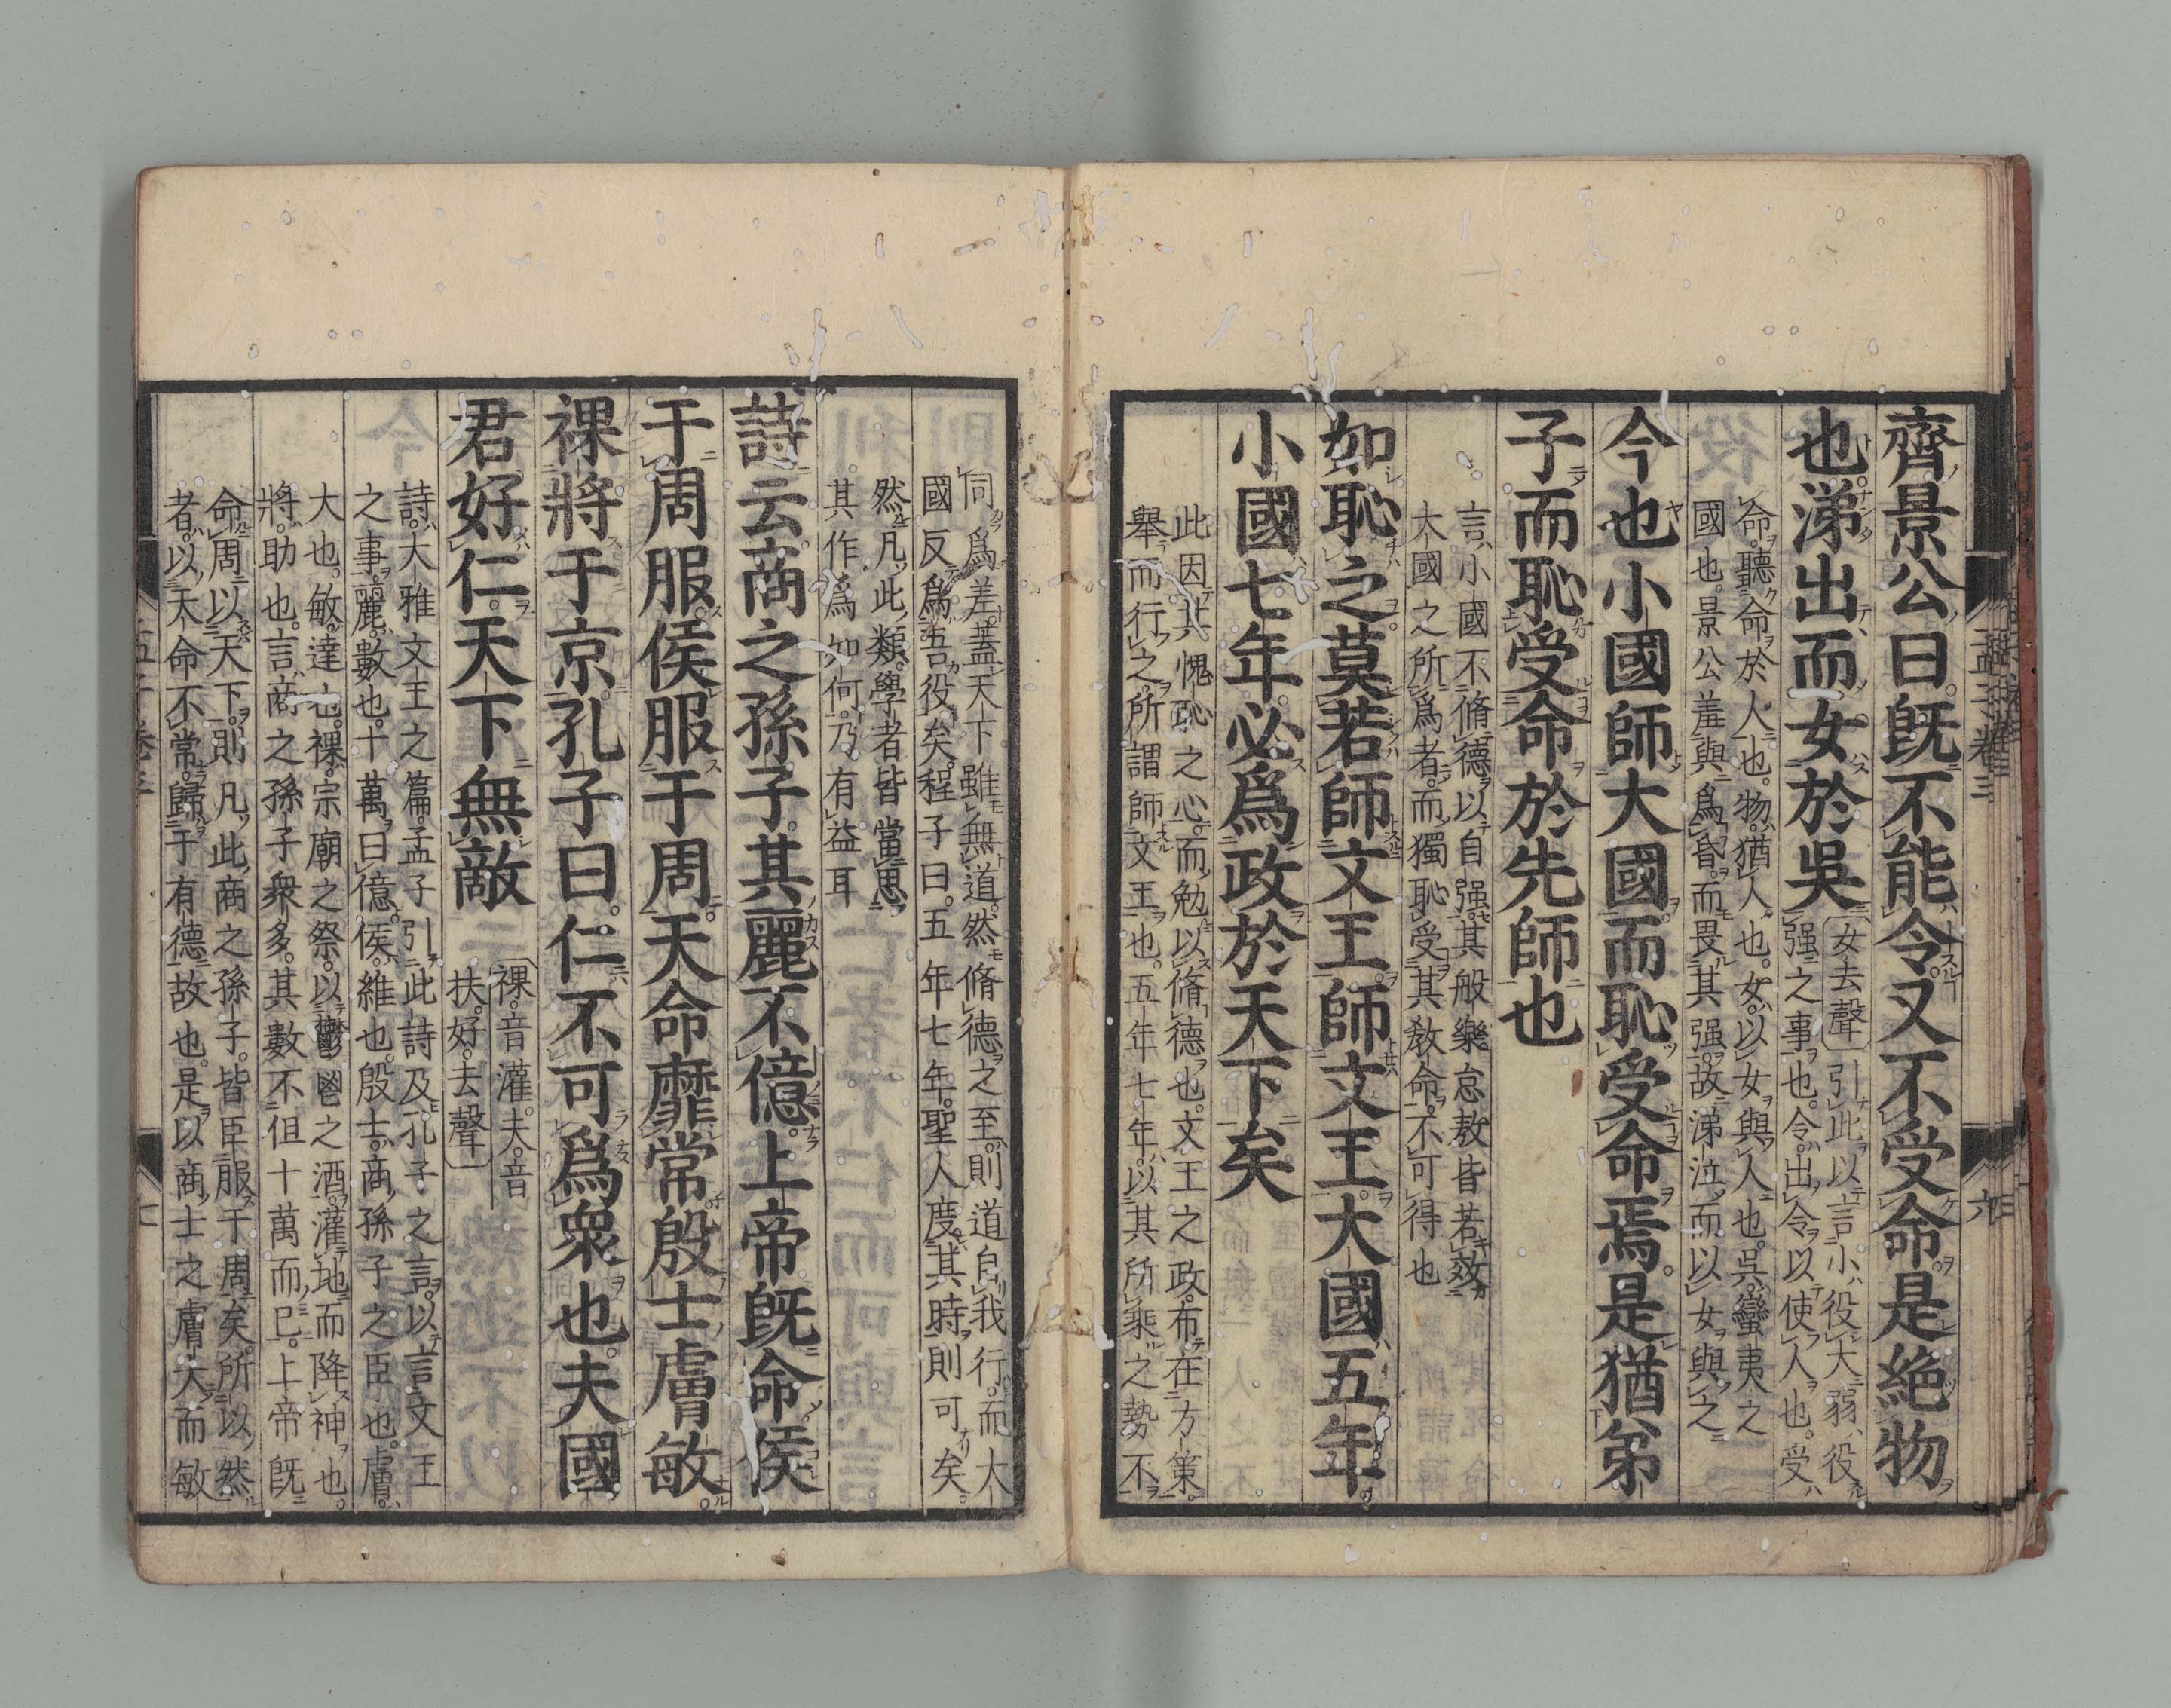 齊景公曰既不能令又不受命是絶物
也涕出而女於吳
女去聲
引此以言小役大弱役
强之事也令出令以使人也受
命聽命於人也物猶人也女以女與人也吳蠻夷之
國也景公羞與爲昏而畏其强故涕泣而以女與之
今也小國師大國而恥受命焉是猶弟
子而恥受命於先師也
言小國不脩德以自强其般樂怠敖皆若效
大國之所爲者而獨恥受其教命不可得也
如恥之莫若師文王師文王大國五年
小國七年必爲政於天下矣
此因其愧恥之心而勉以脩德也文王之政布在方策
舉而行之所謂師文王也五年七年以其所乘之勢不
同爲差蓋天下雖無道然脩德之至則道自我行而大
國反爲吾役矣程子曰五年七年聖人度其時則可矣
然凡此類學者皆當思
其作爲如何乃有益耳
詩云商之孫子其麗不億上帝既命侯
于周服侯服于周天命靡常殷士膚敏
祼將于京孔子曰仁不可爲衆也夫國
君好仁天下無敵
祼音灌夫音
扶好去聲
詩大雅文王之篇孟子引此詩及孔子之言以言文王
之事麗數也十萬曰億侯維也殷士商孫子之臣也膚
大也敏達也祼宗廟之祭以鬱鬯之酒灌地而降神也
將助也言商之孫子衆多其數不但十萬而已上帝既
命周以天下則凡此商之孫子皆臣服于周矣所以然
者以天命不常歸于有德故也是以商士之膚大而敏